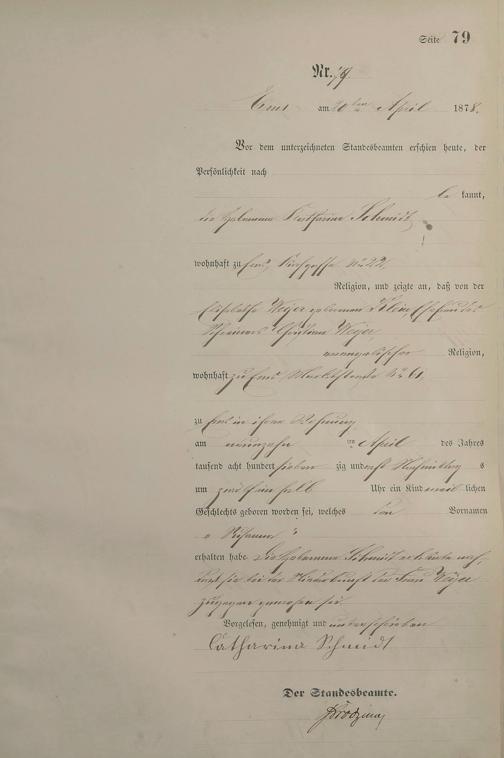 Seite 79
Nr. 79
Ems am 20ten April 1878.
Vor dem unterzeichneten Standesbeamten erschien heute, der
Persönlichkeit nach
be kannt,
die Hebamme Katharina Schmidt
wohnhaft zu Ems, Kirchgasse No 22,
Religion, und zeigte an, daß von der
Elisabethe Weyer geborenen Klein Ehefrau des
Schreiners Christian Weyer
evangelischer Religion,
wohnhaft zu Ems Marktstraße No 61,
zu Ems in ihrer Wohnung
am neunzehn ten April des Jahres
tausend acht hundert sieben zig und acht Nachmittags
um zwölf ein halb Uhr ein Kind lichen
Geschlechts geboren worden sei, welches den Vornamen
erhalten habe. Die Hebamme Schmidt erklärte noch,
daß sie bei der Niederkunft der Frau Weyer
zugegen gewesen sei.
Vorgelesen, genehmigt und unterschrieben
Catharina Schmidt
Der Standesbeamte.